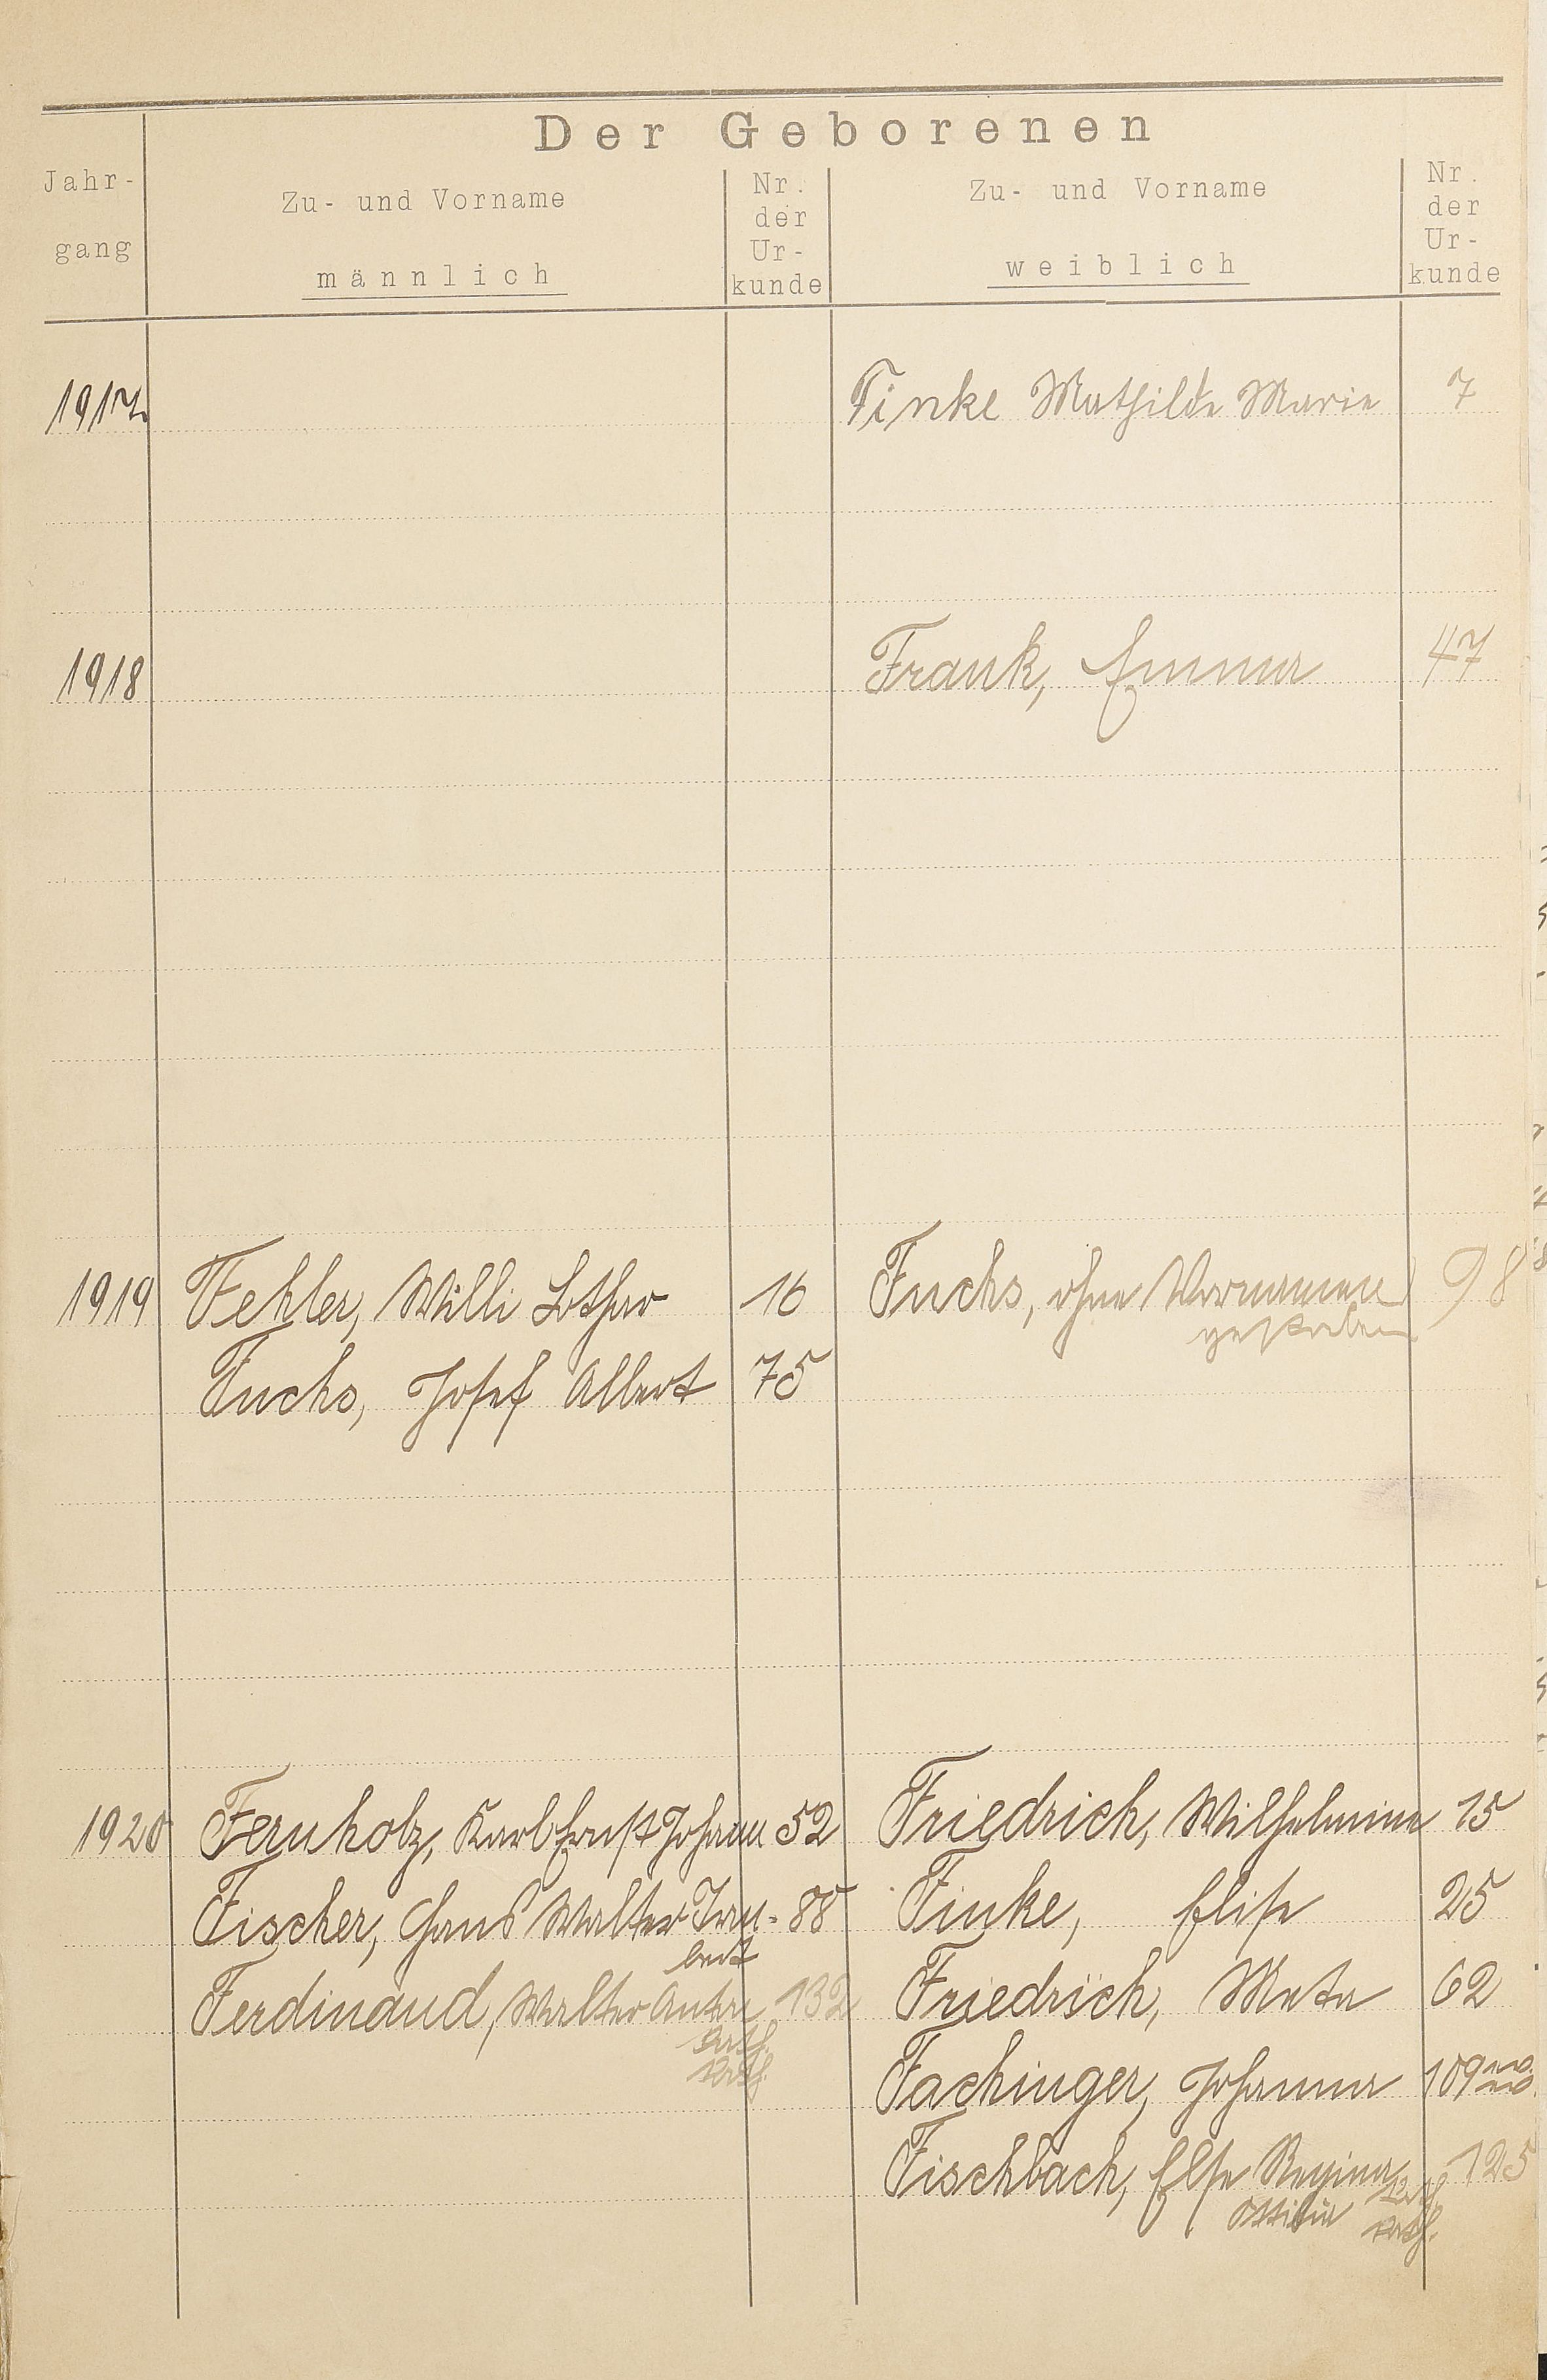 Der Geborenen
Jahr-
gang
Zu- und Vorname
männlich
Nr.
der
Ur-
kunde
Zu- und Vorname
weiblich
Nr.
der
Ur-
kunde
1917 Finke Mathilde Marie 7
1918 Frank, Emma 47
1919 Fehler, Willi Lothar 16 Fuchs, ohne Vornamen 98
gestorben
Fuchs, Josef Albert 75
1920 Fernholz, Karl Ernst Johann 52 Friedrich, Wilhelmine 15
Fischer, Hans Walter 88 Finke, Elise 25
Ferdinand, Walter Anton 132 Friedrich, Meta 62
Fachinger, Johanna 109
Fischbach, Else Regina 125
Ottilia